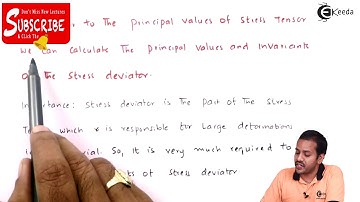 Don't Miss New Lectures
SUBSCRIBE
& Click The
to The Principal values of Stress Tensor
We can calculate The Principal values and Invariants
of The Stress deviator.
Importance: Stress deviator is The Part of The Stress
which is responsible for Large deformations
So, It is very much required to
of Stress deviator
Ekeeda